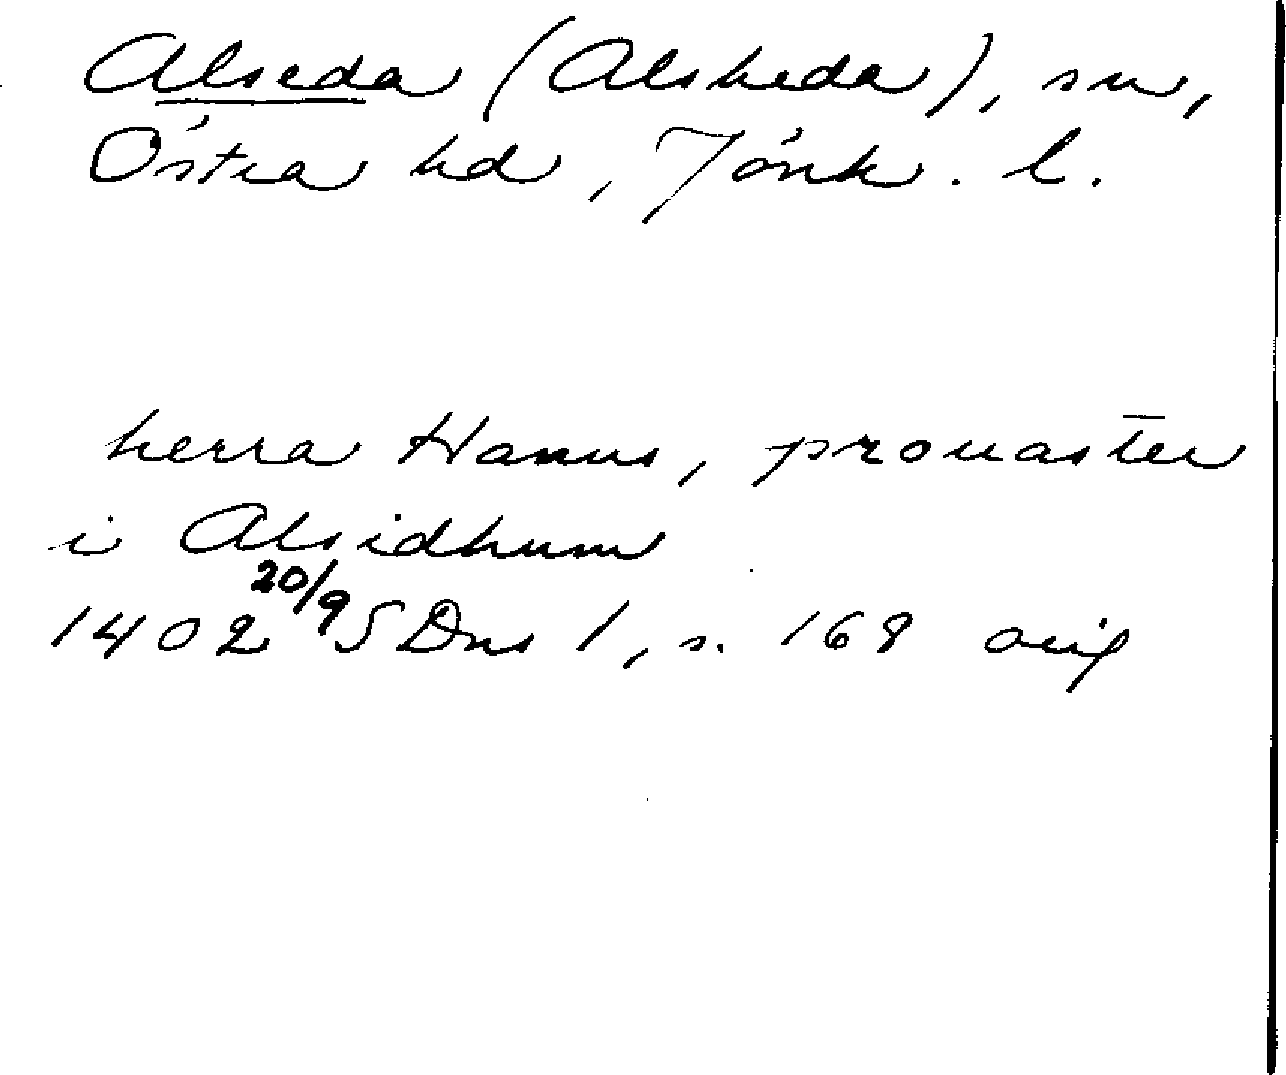 Alseda (Alsheda), sn,
Östra hd, Jönk. l.
herra Hanus, prouasten
i Alsidhum
1402 20/9 SDns 1, s. 168 orig